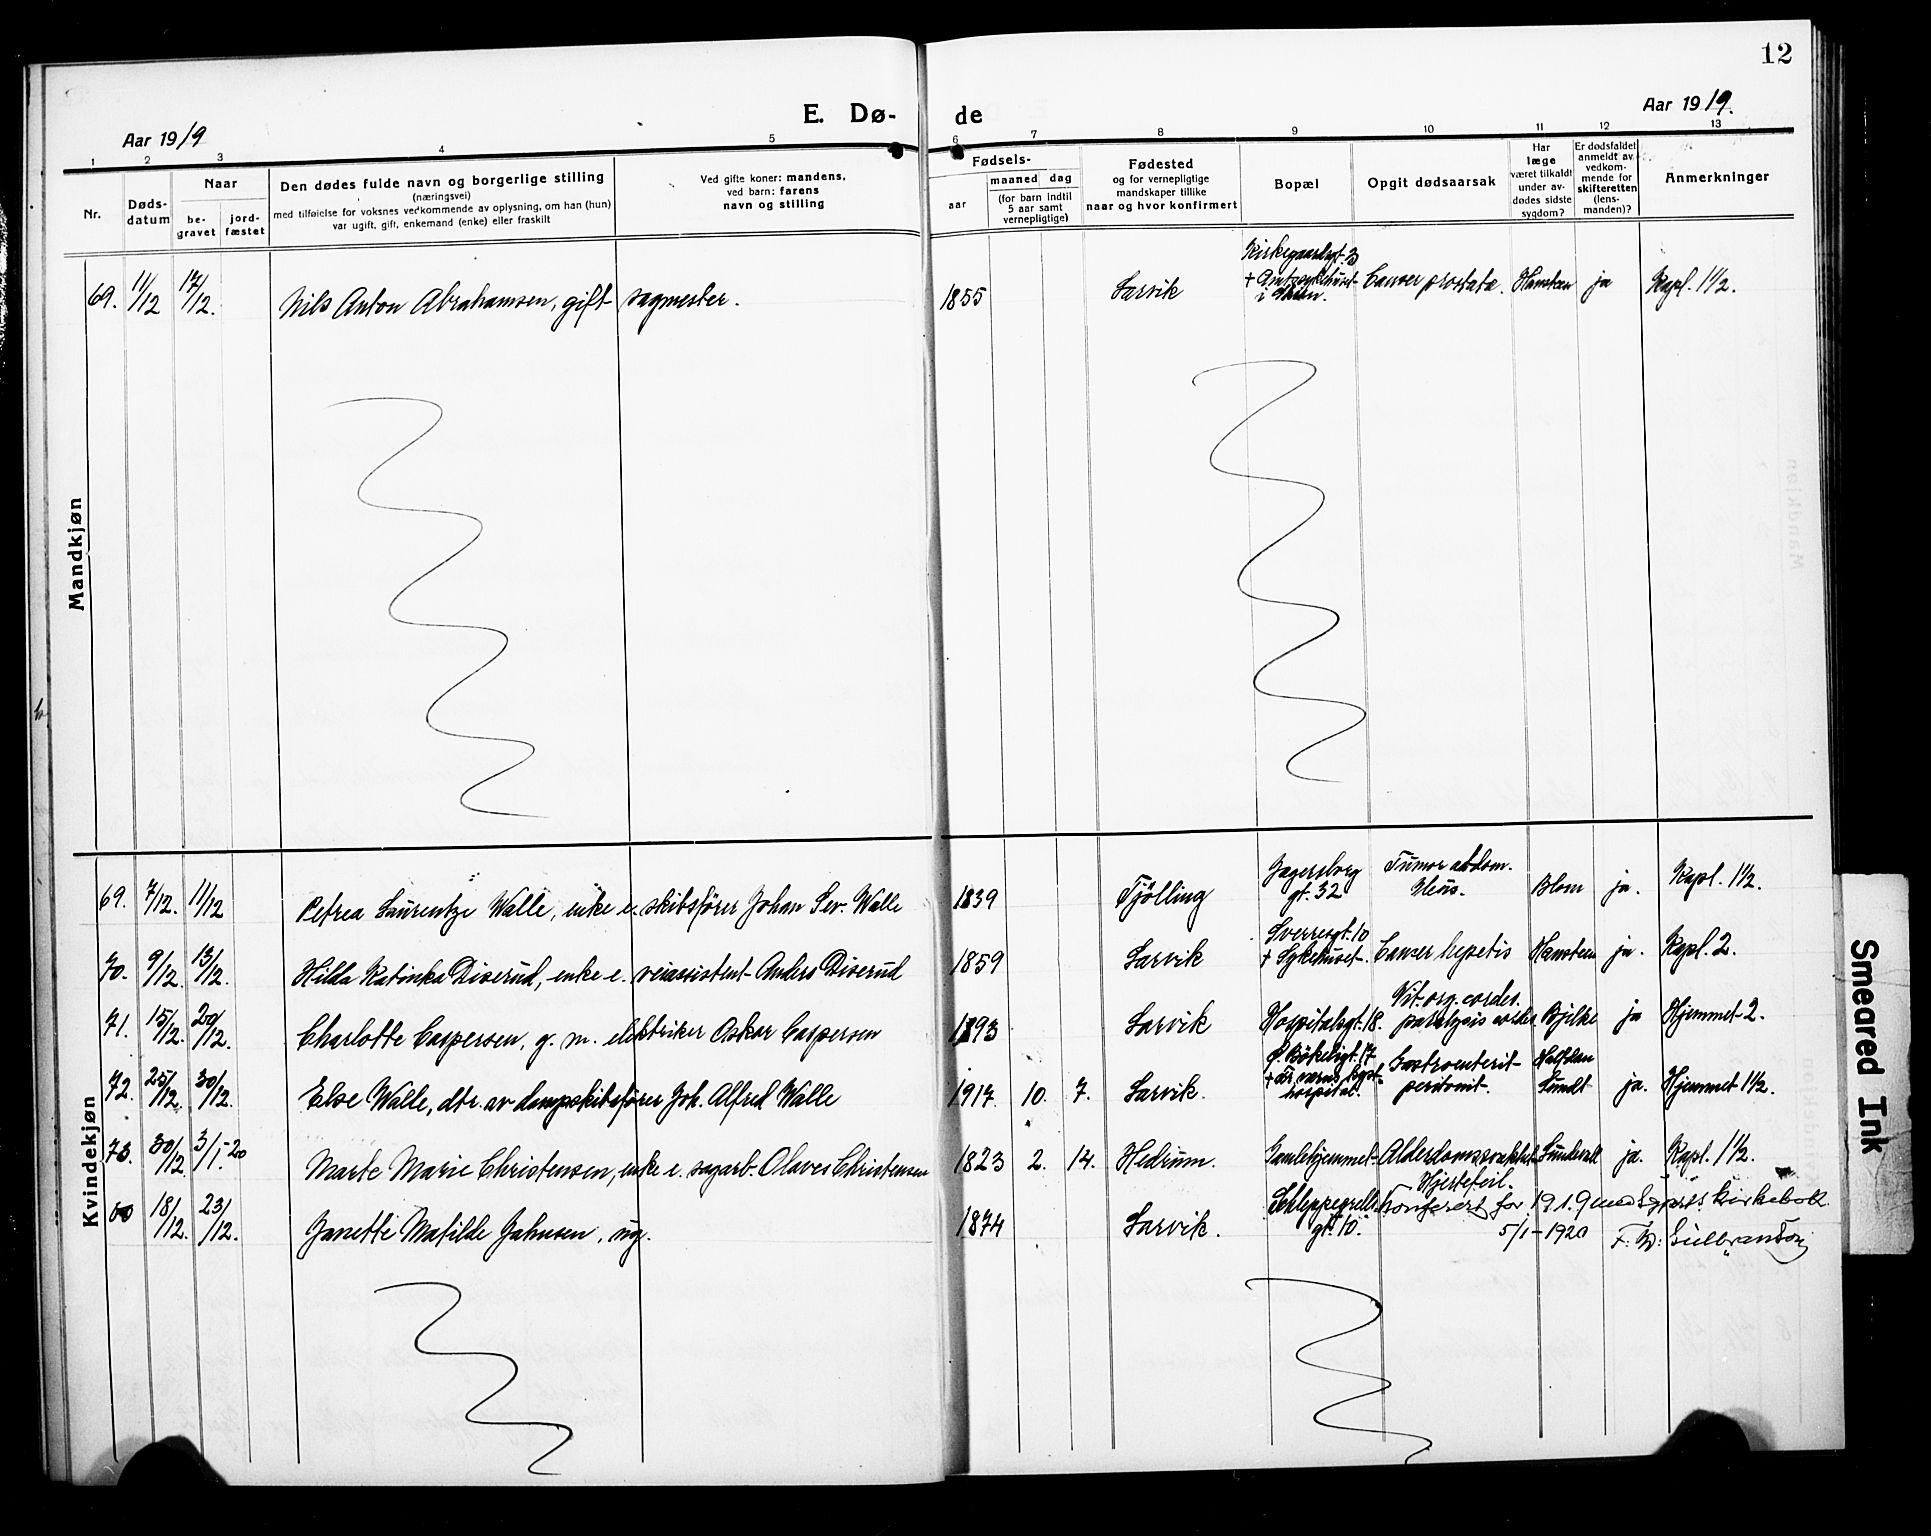 12
E. Dø- de
Aar 1919
Aar 1919.
1 2 3 4 5 6 7 8 9 10 11 12 13
Nr.
Døds-
datum
Naar
be-
gravet
jord-
fæstet
Den dødes fulde navn og borgerlige stilling
(næringsvei)
med tilføielse for voksnes vedkommende av oplysning, om han (hun)
var ugift, gift, enkemand (enke) eller fraskilt
Ved gifte koner: mandens,
ved barn: farens
navn og stilling
Fødsels-
aar
maaned dag
(for barn indtil
5 aar samt
vernepligtige)
Fødested
og for vernepligtige
mandskaper tillike
naar og hvor konfirmert
Bopæl
Opgit dødsaarsak
Har
læge
været tilkaldt
under av-
dødes sidste
sygdom?
Er dødsfaldet
anmeldt av
vedkom-
mende for
skifteretten
(lens-
manden)?
Anmerkninger
Mandkjøn
69. 11/12 17/12. Nils Anton Abrahamsen, gift sagmester. 1855 Larvik
Kirkegaardsgt. 3
+ Amtssykehuset
i Skien.
Cancer prostata. Hansteen ja Kapl. 1½.
Kvindekjøn
69. 7/12. 11/12 Petrea Laurentze Walle, enke e. skibsfører Johan Sev. Walle 1839 Tjölling
Jegersborg
gt. 32
Tumor abdom.
Ileus.
Blom ja. Kapl. 1½.
70. 9/12. 13/12. Hilda Katinka Diserud, enke e. veiassistent Anders Diserud 1859 Larvik
Sverresgt. 10
+ Sykehuset.
Cancer hepatis Hansteen ja. Kapl. 2.
71. 15/12. 20/12. Charlotte Caspersen, g. m. elektriker Oskar Caspersen 1893 Larvik Hospitalsgt. 18.
Vit. org. cordis.
paralysis cordis
Bjelke ja Hjemmet 2.
72. 25/12. 30/12. Else Walle, dtr. av dampskibsfører Joh. Alfred Walle 1917. 10. 7. Larvik.
Ø. Bökeligt. 17
hospital.
Gastroenterit
peritonit.
Halfdan
Sundt
ja. Hjemmet 1½.
73. 30/12. 3/1.-20 Marte Marie Christensen, enke e. sagarb. Olaves Christensen 1823 2. 14. Hedrum. Gamlehjemmet Alderdomssvakhet Sundvall ja. Kapl. 1½.
18/12. 23/12. Janette Matilde Jahnsen, ug. 1874 Larvik.
Schleppegrells
gt. 10.
Hjertefeil.
Konferert for 1919 med kirkebok
5/1-1920 F. W. Gulbranson
Smeared Ink